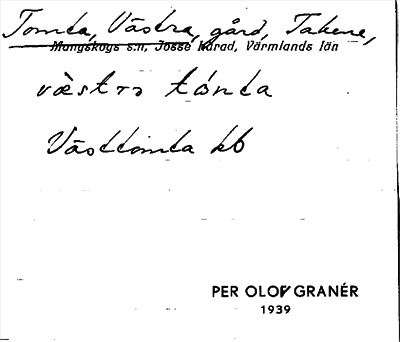 Tomta, Västra, gård, Takene,
Mangskogs s:n, Jösse härad, Värmlands län
væstra tómta
Västtomta kb
PER OLOF GRANÉR
1939